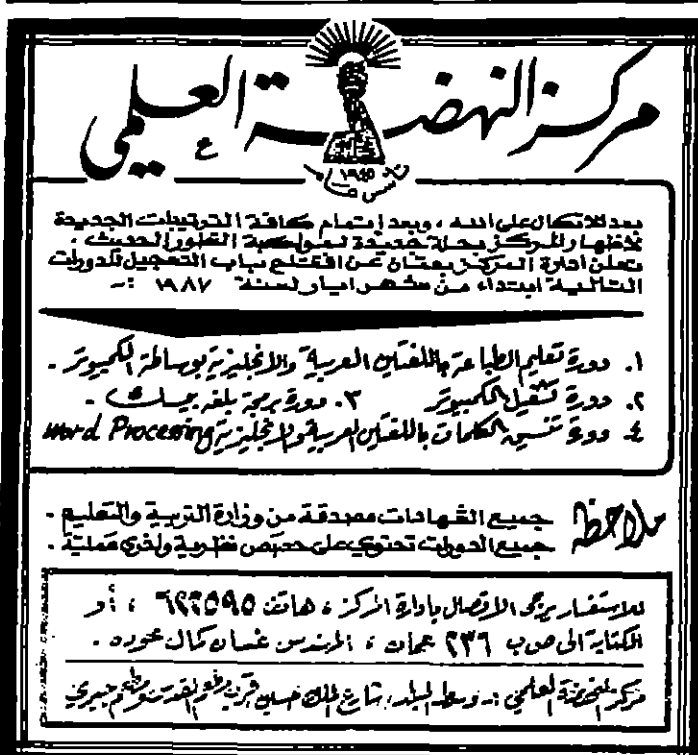 مركز النهضة العلمي
تأسس عام
١٩٤٥
بعد الاتكال على الله ، وبعد إتمام كافة الترتيبات الجديدة
المركز بحلة جديدة لمواكبة التطور الحديث ،
تعلن ادارة المركز بعمان عن افتتاح باب التسجيل للدورات
التالية ابتداء من شهر ايار لسنة ١٩٨٧ :-
١. دورة تعليم الطباعة باللغتين العربية والانجليزية بوساطة الكمبيوتر .
٢. دورة تشغيل الكمبيوتر ٣. دورة برمجة بلغة بيسك .
٤. دورة تنسيق الكلمات باللغتين العربية والانجليزية Word Processing
ملاحظة
جميع الشهادات مصدقة من وزارة التربية والتعليم .
جميع الدورات تحتوي على حصص نظرية واخرى عملية .
للاستفسار يرجى الاتصال بادارة المركز ، هاتف ٦٢٢٥٩٥ ، أو
الكتابة الى ص.ب ٢٣٦ عمان ، المهندس غسان كمال عوده .
مركز النهضة العلمي :- وسط البلد ، شارع الملك حسين قرب مطعم القدس ومطعم جبري